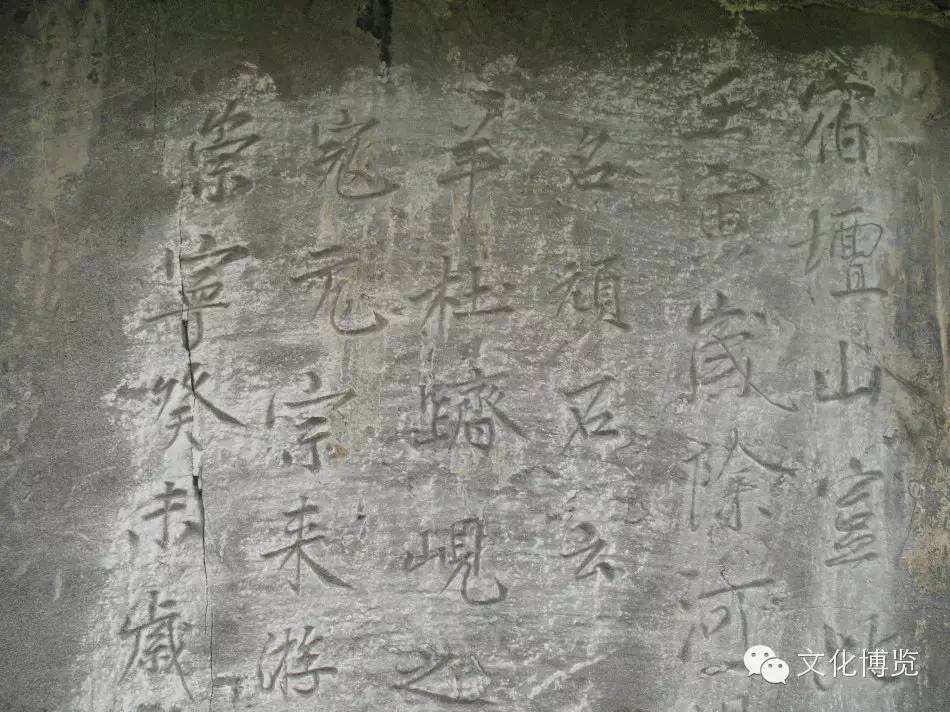 宿壇山
壬寅歲除河
名石云
羊杜躋峴之
寇元宗来游
崇寧癸未歲
文化博览